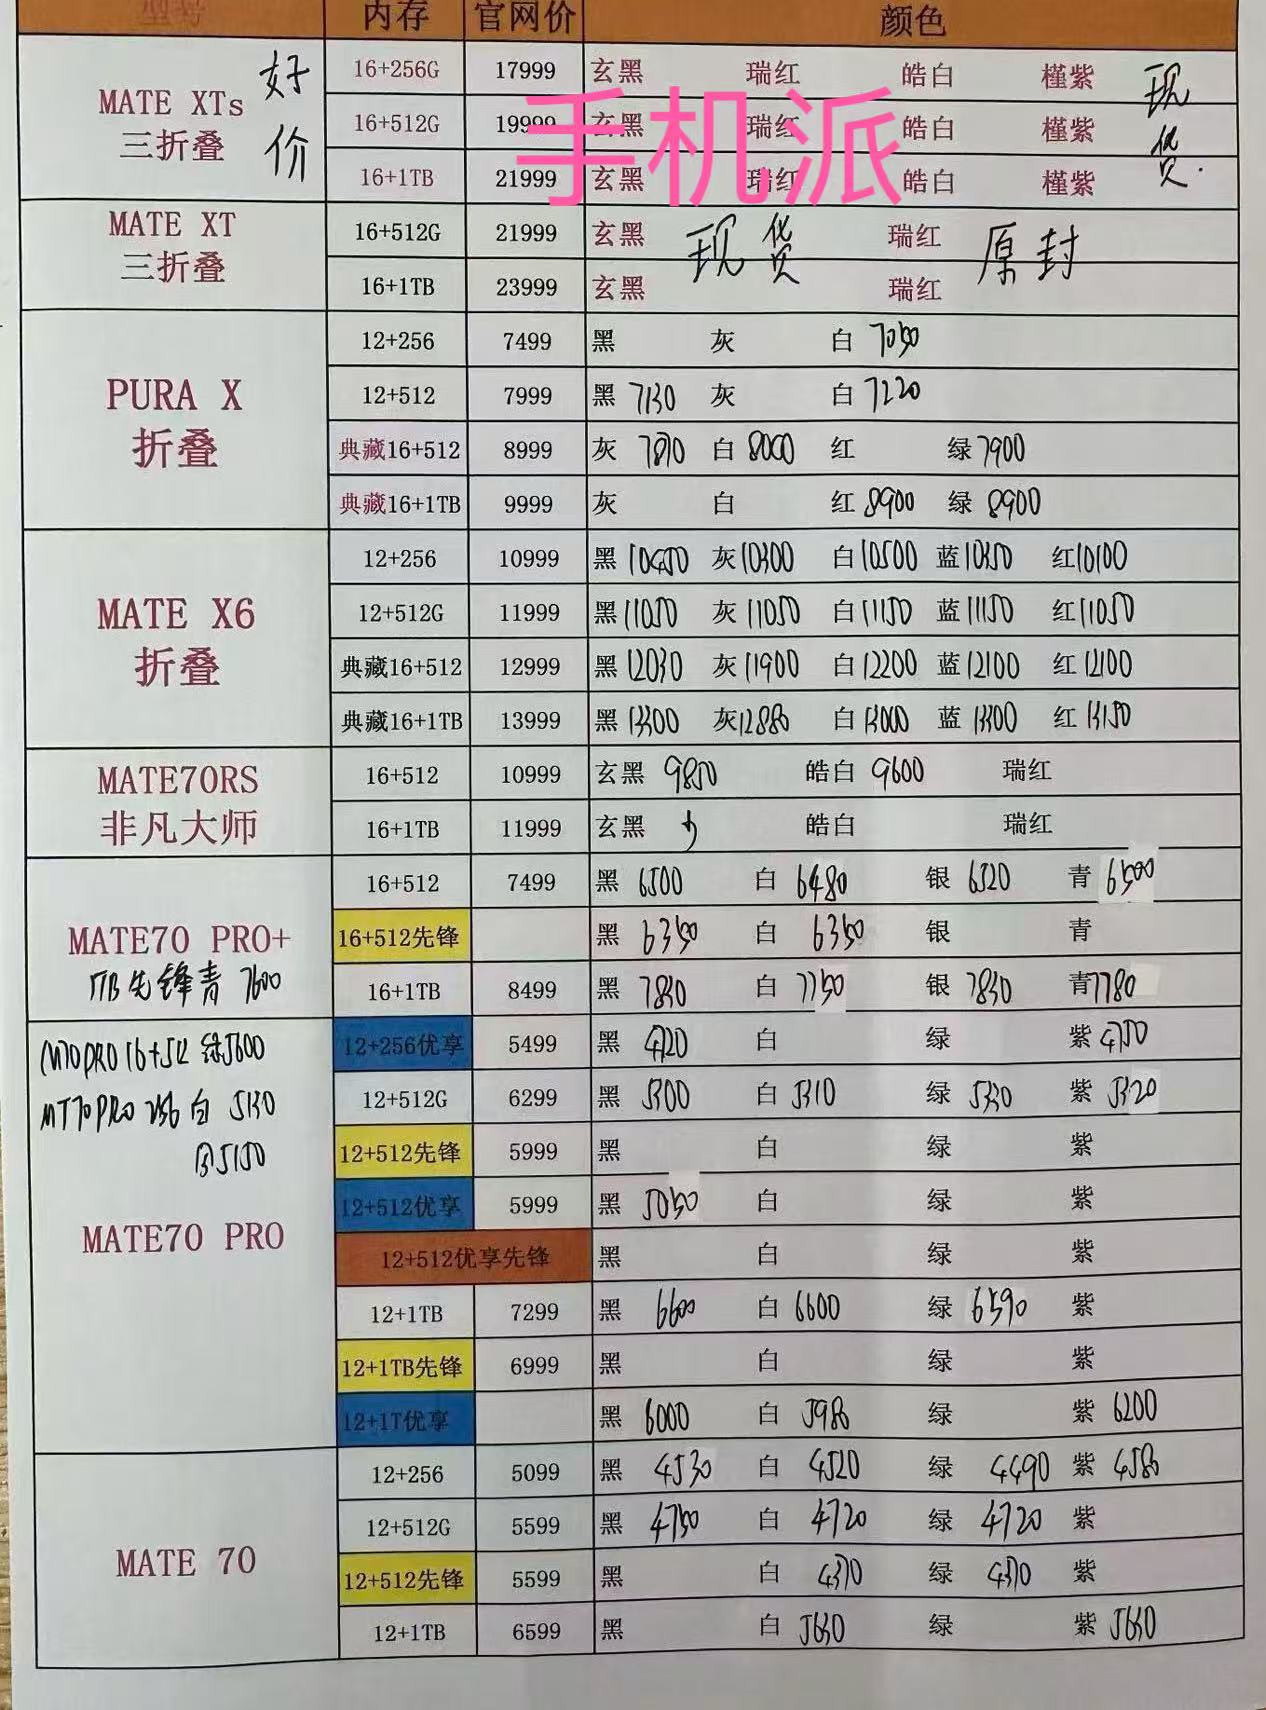 型号 内存 官网价 颜色
MATE XTs 三折叠 好价 16+256G 17999 玄黑 瑞红 皓白 槿紫 现货
16+512G 19999 玄黑 瑞红 皓白 槿紫
16+1TB 21999 玄黑 瑞红 皓白 槿紫
手机派
MATE XT 三折叠 16+512G 21999 玄黑 瑞红 现货 原封
16+1TB 23999 玄黑 瑞红
PURA X 折叠 12+256 7499 黑 灰 白 7050
12+512 7999 黑 7130 灰 白 7220
典藏16+512 8999 灰 7870 白 8000 红 绿 7900
典藏16+1TB 9999 灰 白 红 8900 绿 8900
MATE X6 折叠 12+256 10999 黑 10450 灰 10300 白 10500 蓝 10350 红 10100
12+512G 11999 黑 11050 灰 11050 白 11150 蓝 11150 红 11050
典藏16+512 12999 黑 12030 灰 11900 白 12200 蓝 12100 红 12100
典藏16+1TB 13999 黑 13300 灰 12880 白 13000 蓝 13300 红 13150
MATE70RS 非凡大师 16+512 10999 玄黑 9850 皓白 9600 瑞红
16+1TB 11999 玄黑 皓白 瑞红
MATE70 PRO+ 16+512 7499 黑 6500 白 6480 银 6520 青 6500
16+512先锋 黑 6350 白 6350 银 青
1TB先锋青 7600
16+1TB 8499 黑 7830 白 7750 银 7830 青 7780
M70PRO 16+512 绿5600
MT70PRO 256 白 5130
5150
MATE70 PRO
12+256优享 5499 黑 4720 白 绿 紫 4750
12+512G 6299 黑 5300 白 5310 绿 5330 紫 5320
12+512先锋 5999 黑 白 绿 紫
12+512优享 5999 黑 5050 白 绿 紫
12+512优享先锋 黑 白 绿 紫
12+1TB 7299 黑 6600 白 6600 绿 6590 紫
12+1TB先锋 6999 黑 白 绿 紫
12+1T优享 黑 6000 白 5980 绿 紫 6200
MATE 70 12+256 5099 黑 4530 白 4520 绿 4490 紫 4580
12+512G 5599 黑 4750 白 4720 绿 4720 紫
12+512先锋 5599 黑 白 4370 绿 4370 紫
12+1TB 6599 黑 白 5630 绿 紫 5630